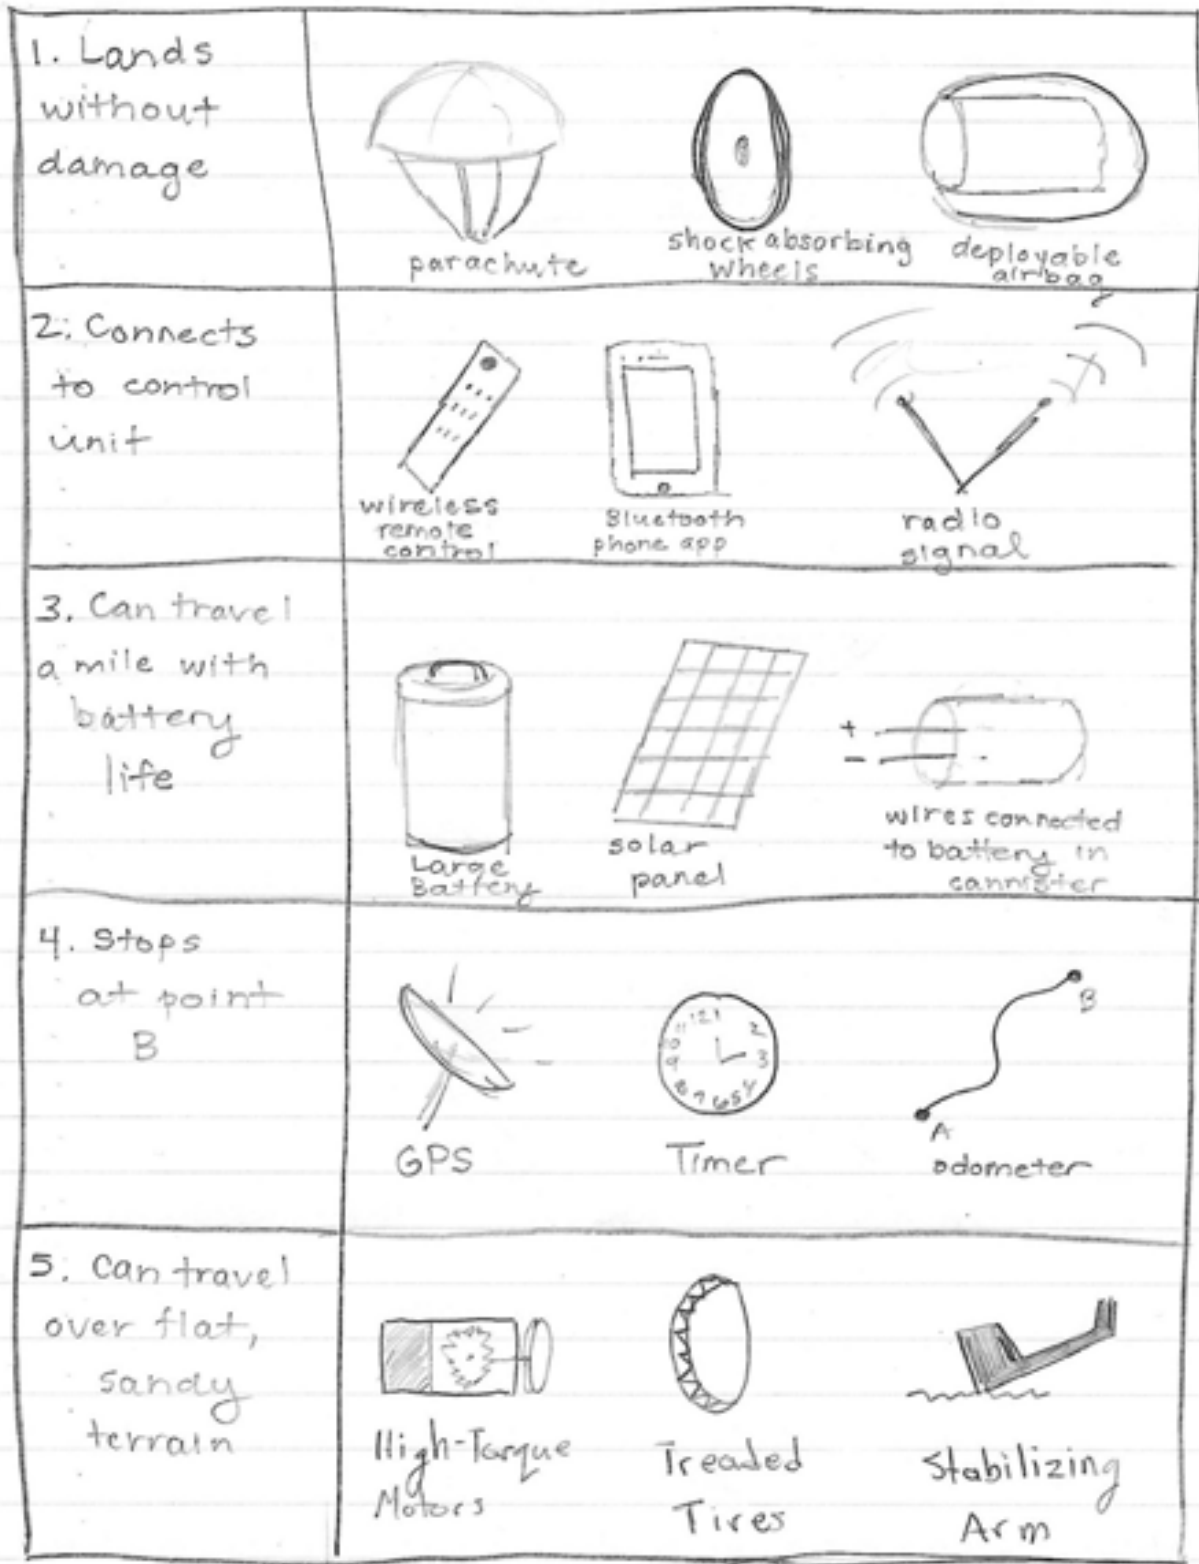 1. Lands
without
damage
parachute
shock absorbing
wheels
deployable
airbag
2. Connects
to control
unit
wireless
remote
control
Bluetooth
phone app
radio
signal
3. Can travel
a mile with
battery
life
Large
Battery
solar
panel
+
-
wires connected
to battery in
cannister
4. Stops
at point
B
GPS
12 1 2 3 4 5 6 7 8 9 10 11
Timer
A
B
odometer
5. Can travel
over flat,
sandy
terrain
High-Torque
Motors
Treaded
Tires
Stabilizing
Arm